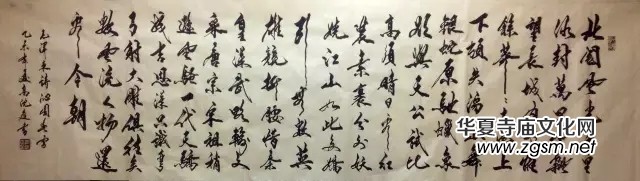 北国风光千里
冰封萬里雪飘
望長城内外惟
餘莽莽大河上
下顿失滔滔山舞
银蛇原驰蜡象
欲與天公试比
高须晴日看红
装素裹分外妖
娆江山如此多娇
引無数英
雄競折腰惜秦
皇漢武略输文
采唐宗宋祖稍
逊风骚一代天骄
成吉思汗只识弯
弓射大雕俱往矣
数風流人物還
看今朝
毛澤東詩沁園春雪
乙未年夏
华夏寺庙文化网
www.zgsm.net